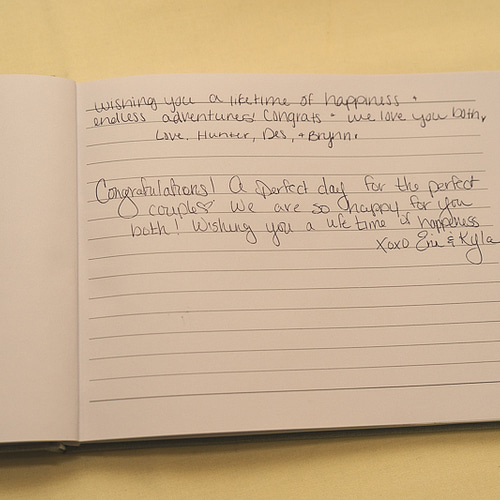 wishing you a lifetime of happiness +
endless adventures! Congrats + we love you both,
Love, Hunter, Des, + Brynn.
Congratulations! A perfect day for the perfect
couple♡ We are so happy for you
both! Wishing you a life time of happiness
xoxo & Kyla